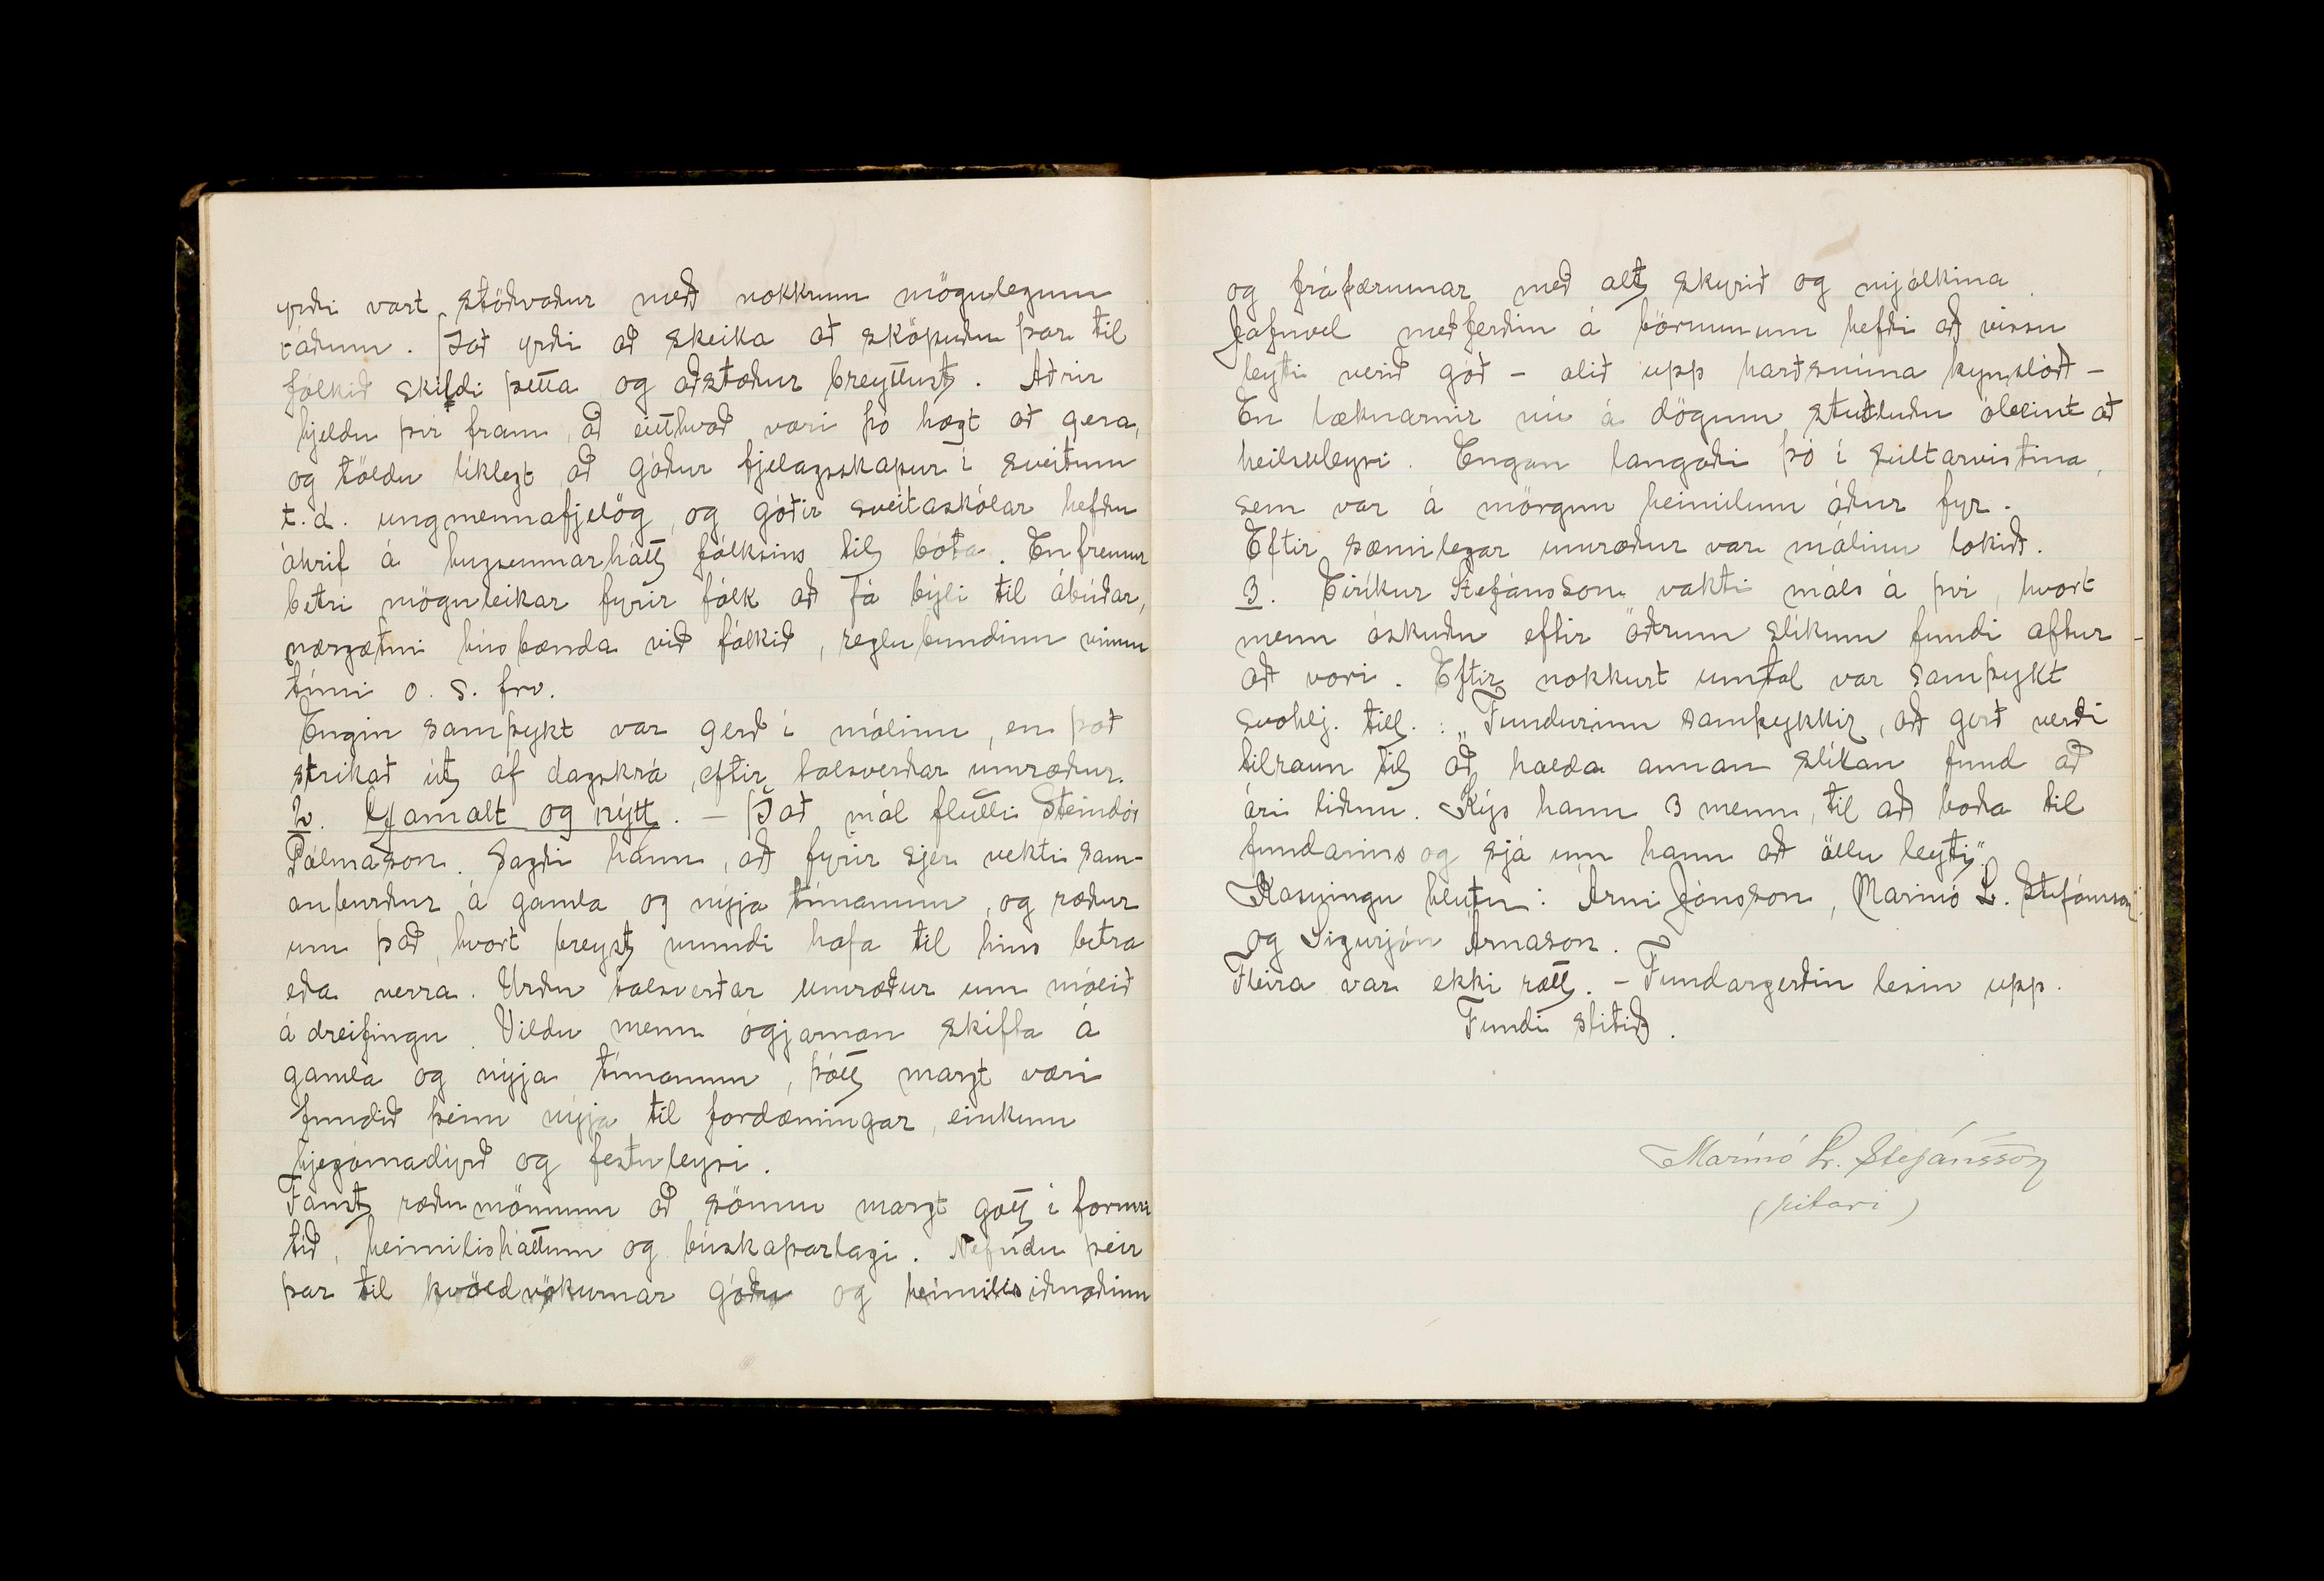 yrði vart stöðvaður með nokkrum mögulegum
ráðum. Það yrði að skeika að sköpuðu þar til
fólkið skildi þetta og aðstæður breyttust. Aðrir
hjeldu því fram, að eitthvað væri þó hægt að gera,
og töldu líklegt, að góður fjelagsskapur í sveitum
t.d. ungmennafjelög, og góðir sveitaskólar hefðu
áhrif á hugsunnarhátt fólksins til bóta. Enfremur
betri möguleikar fyrir fólk að fá býli til ábúðar,
nærgætni húsbænda við fólkið, reglubundinn vinnu
tími o. s. frv.
Engin samþykt var gerð í málinu, en það
strikað út af dagskrá, eftir talsverðar umræður.
2. Gamalt og nýtt. - Það mál flutti Steindór
Pálmason. Sagði hann, að fyrir sjer vekti sam-
anburður á gamla og nýja tímanum, og ræður
um það, hvort breyst mundi hafa til hins betra
eða verra. Urðu talsverðar umræður um málið
á dreifingu. Vildu menn ógjarnan skifta á
gamla og nýja tímanum, þótt margt væri
fundið þeim nýja til fordæmingar, einkum
hjegómadýrð og festuleysi.
Fanst ræðumönnum að sönnu margt gott í fornri
tíð, heimilisháttum og búskaparlagi. Nefndu þeir
þar til kvöldvökurnar góðu og heimilisiðnaðinn
og fráfærurnar með alt skyrið og mjólkina.
Jafnvel meðferðin á börnunum hefði að vissu
leyti verið góð - alið upp harðsnúna kynslóð -
En læknarnir nú á dögum stuðluðu óbeint að
heilsuleysi. Engan langaði þó í sultarvistina,
sem var á mörgum heimilum áður fyr.
Eftir sæmilegar umræður var málinu lokið.
3. Eiríkur Stefánsson vakti máls á því, hvort
menn óskuðu eftir öðrum slíkum fundi aftur
að vori. Eftir nokkurt umtal var samþykt
svohlj. till.: „Fundurinn samþykkir, að gerð verði
tilraun til að halda annan slíkan fund að
ári liðnu. Kýs hann 3 menn, til að boða til
fundarins og sjá um hann að öllu leyti."
Kosningu hlutu: Árni Jónsson, Marinó L. Stefánsson
og Sigurjón Árnason.
Fleira var ekki rætt. - Fundargerðin lesin upp.
Fundi slitið.
Marinó L. Stefánsson
(ritari)